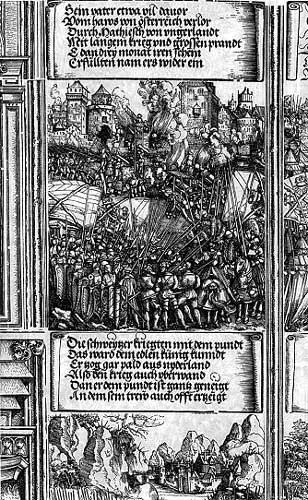 Sein vater etwa vil dauor
Vom haws von österreich verlor
Durch Mathiesch von vngerlandt
Mit langem krieg vnd grossen prandt
E dan drey monat iren schein
Erfüllten nam ers wider ein
Die schweytzer kriegten mit dem pundt
Das ward dem edlen künig kundt
Er zog gar pald aus nyderland
Also den krieg auch yberwand
Dan er dem pundt ist gantz geneigt
An dem sein trew auch offt erzeigt